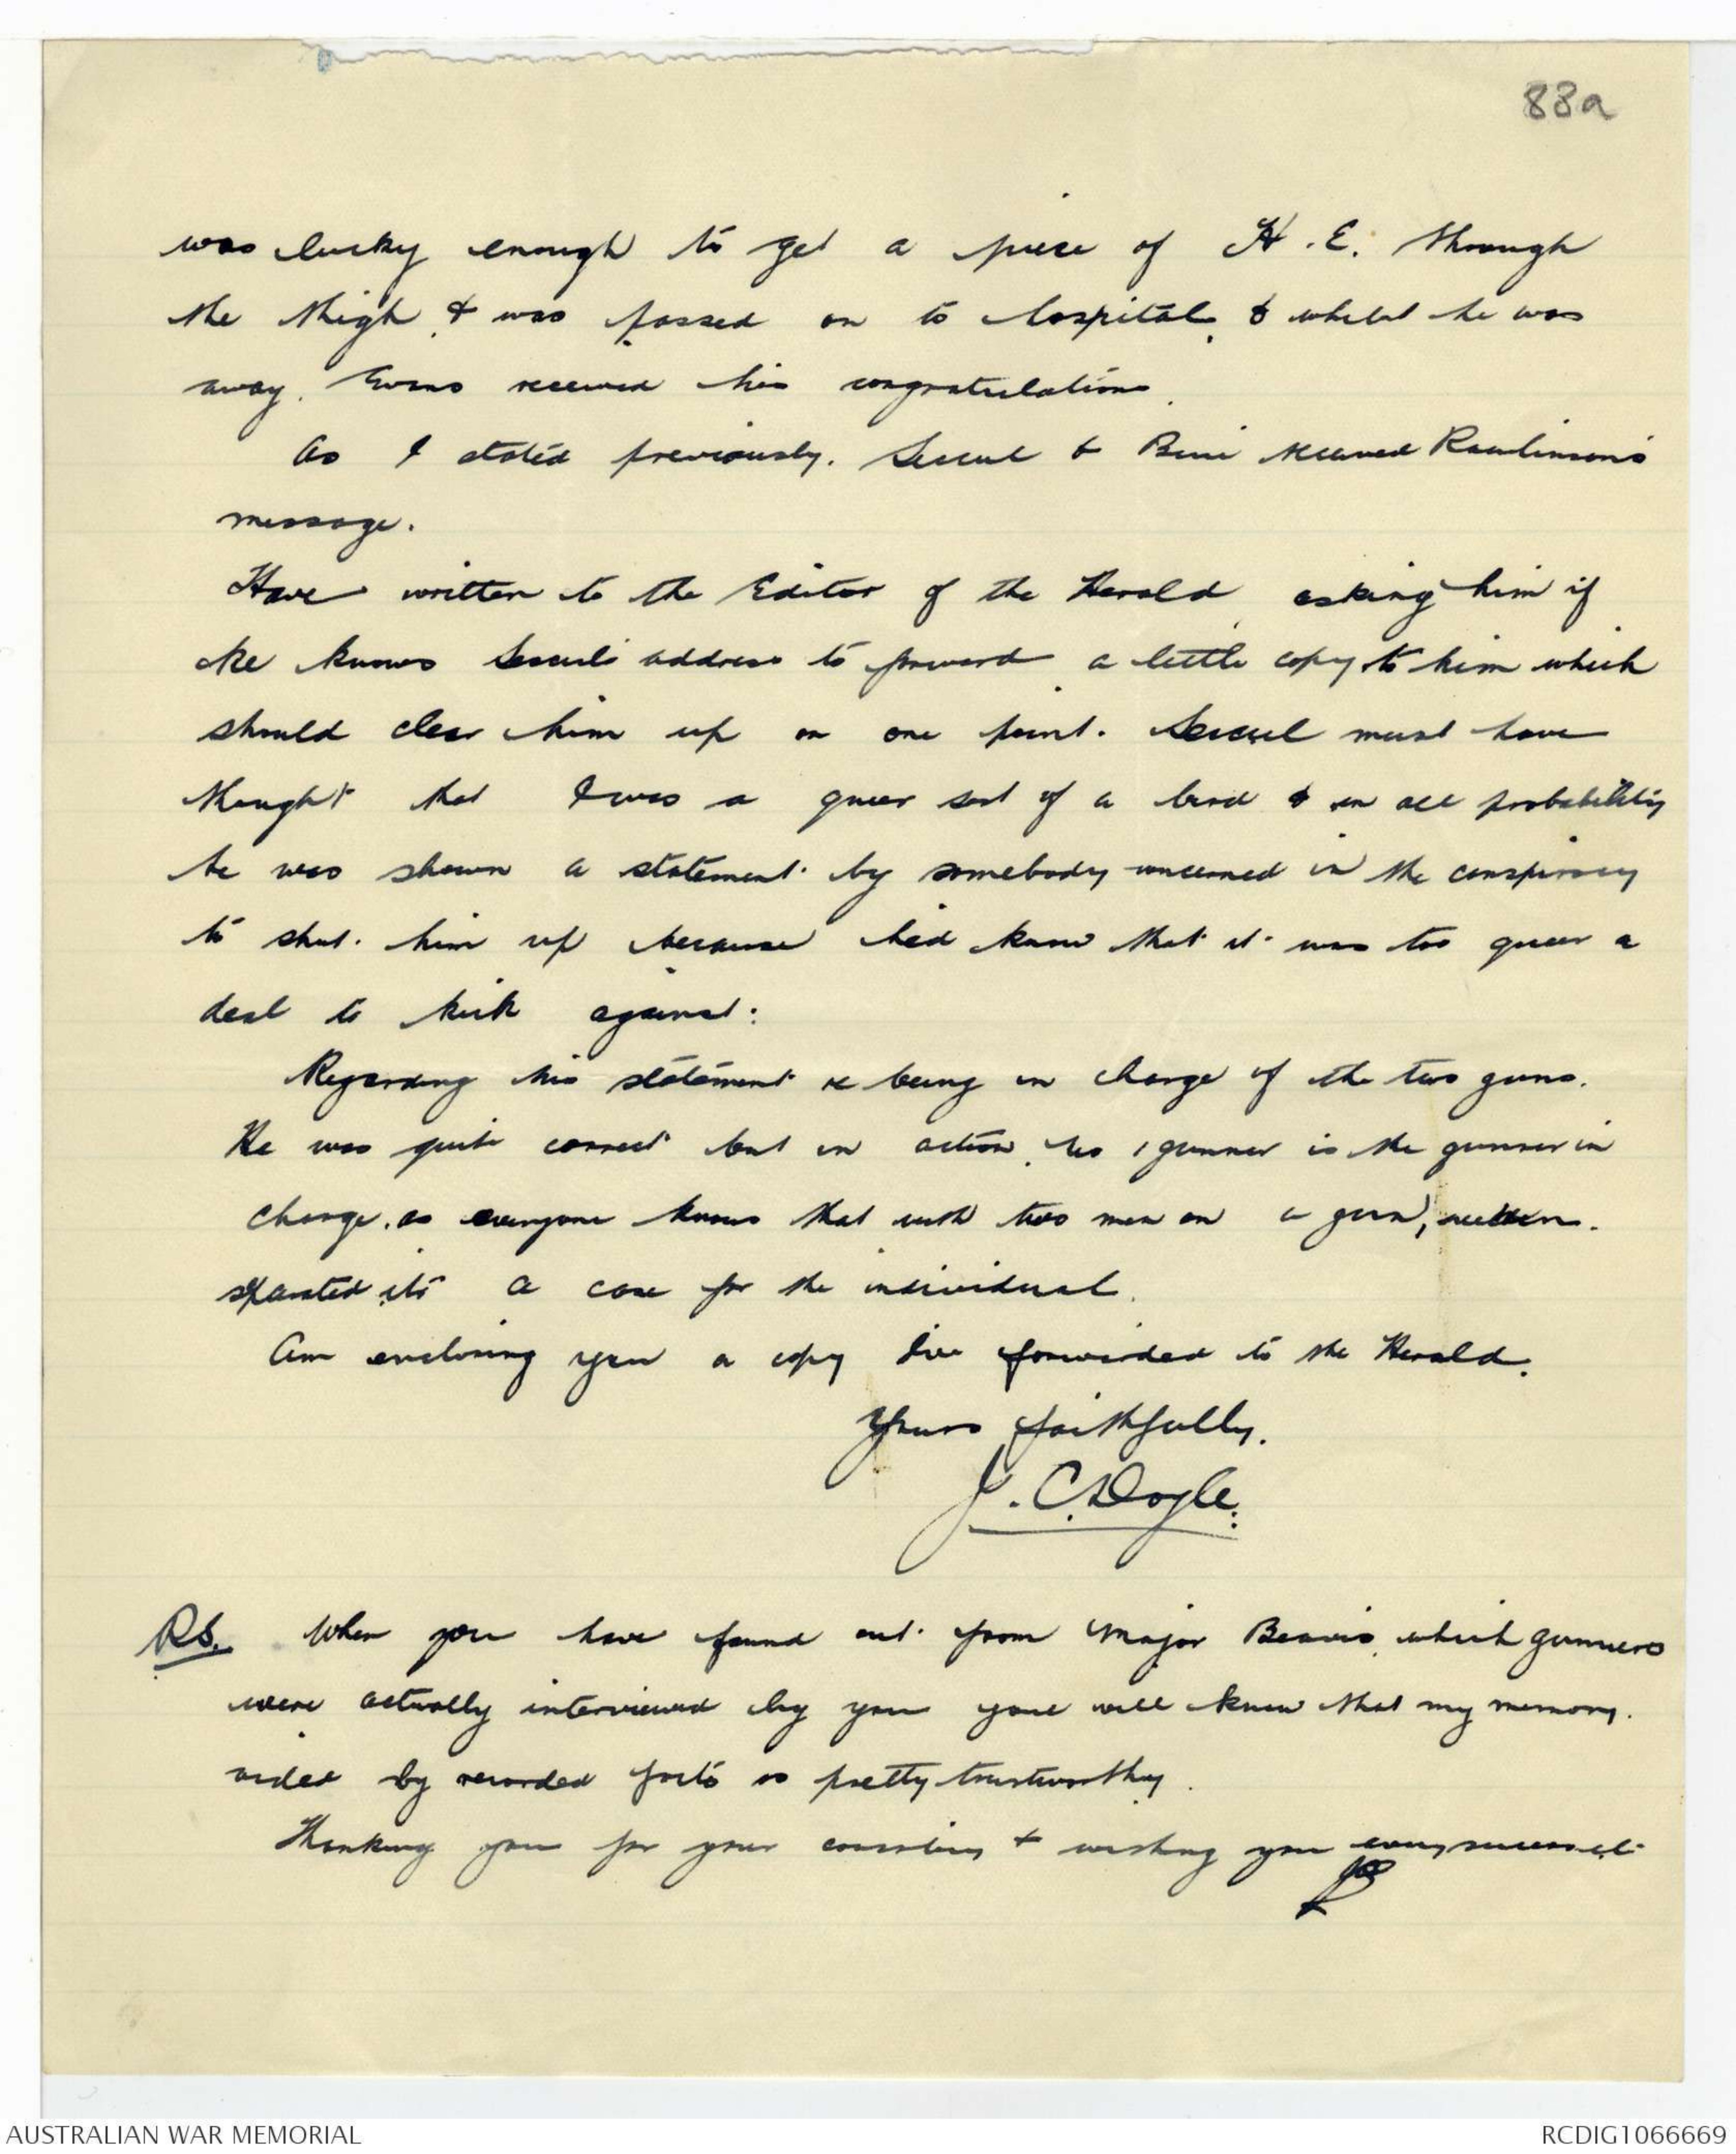 88a
was lucky enough to get a piece of H.E. through
the thigh & was passed on to hospital & whilst he was
away. Evans received his congratulations.
As I stated previously. Seccul & Buie received Rawlinson's
message.
Have written to the Editor of the Herald asking him if
he knows Seccul's address to forward a little copy to him which
should clear him up on one point. Seccul must have
thought that I was a queer sort of a bird & in all probability
he was shown a statement by somebody concerned in the conspiracy
to shut him up because he'd know that it was too queer a
deal to kick against:
Regarding his statement re being in charge of the two guns.
He was quite correct but in action, No 1 gunner is the gunner in
charge, as everyone knows that with two men on a gun,
separated its a case for the individual.
Am enclosing you a copy I've forwarded to the Herald.
Yours faithfully.
J. C. Doyle.
P.S. When you have found out from Major Beavis which gunners
were actually interviewed by you you'll will know that my memory.
aided by recorded facts is pretty trustworthy.
Thanking you for your courtesy & wishing you every success
AUSTRALIAN WAR MEMORIAL
RCDIG1066669